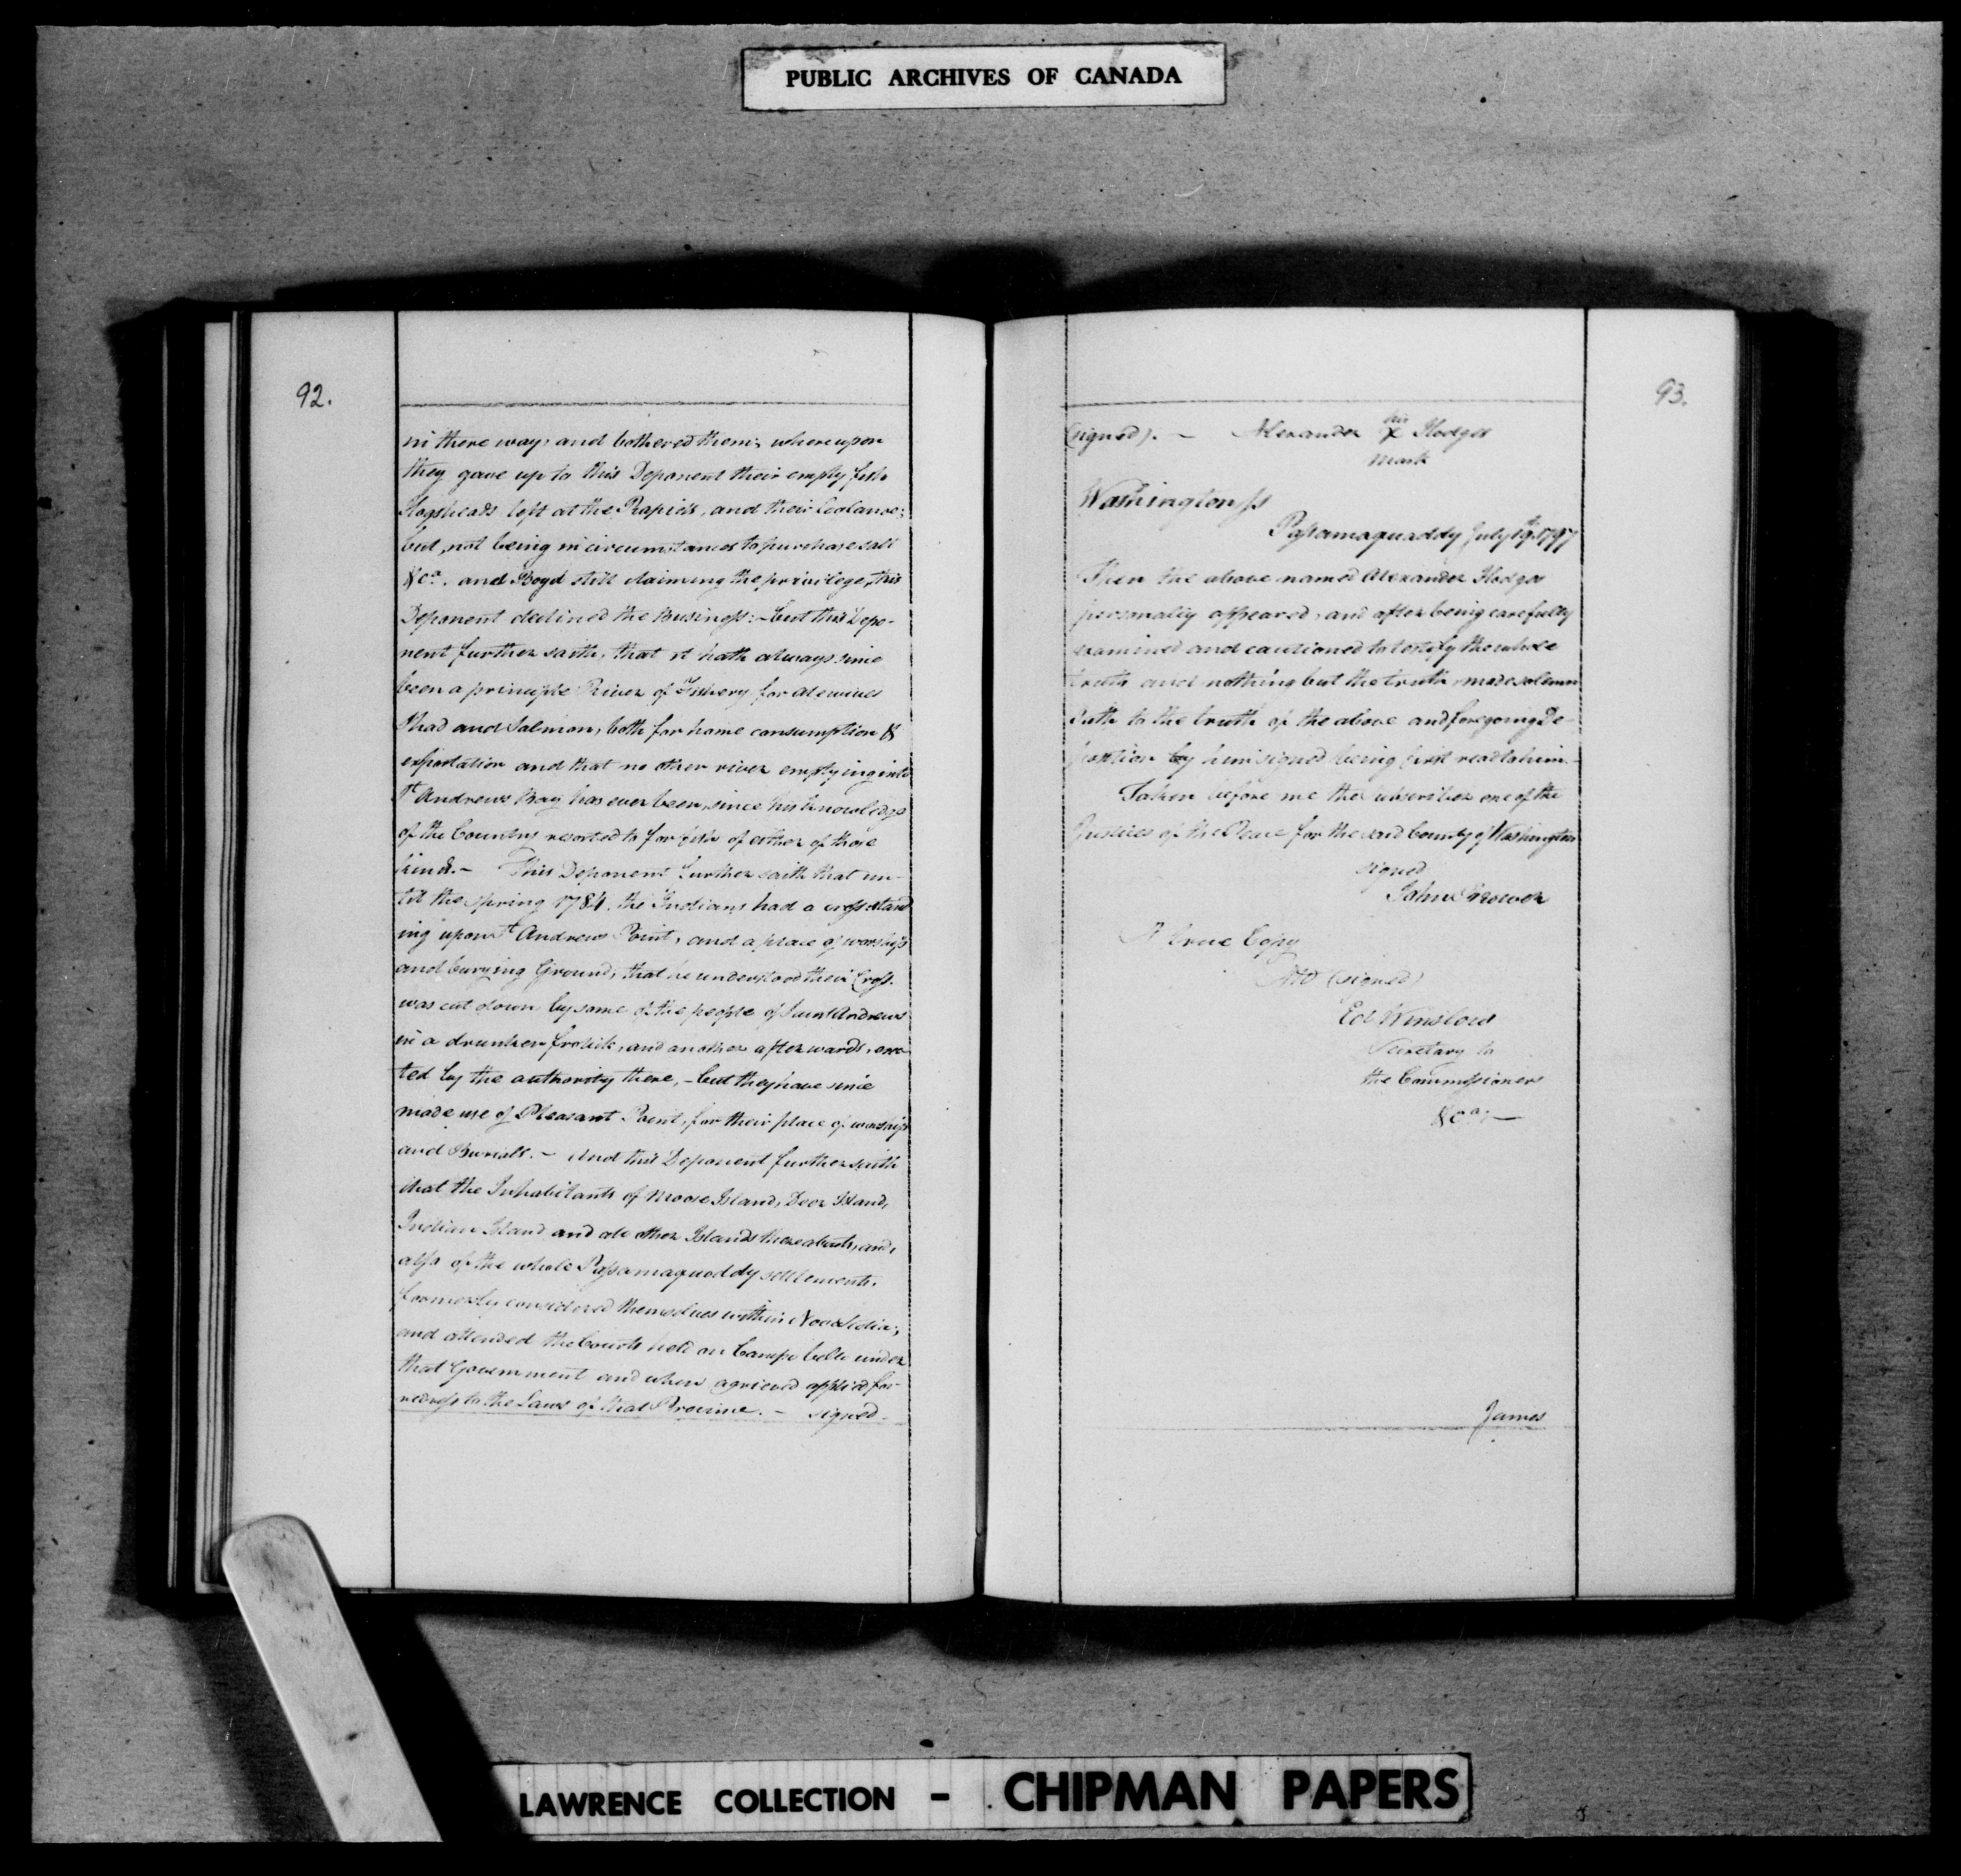 PUBLIC ARCHIVES OF CANADA
92.
in there way, and bothered them; whereupon
they gave up to this Deponent their empty fish
Hogsheads left at the Rapids, and their
but, not being in circumstances to purchase salt
&ca. and Boyd still claiming the privilege, this
Deponent declined the Business: – but this Depo-
nent further saith, that it hath always since
been a principle River of Fishery for alewives
Shad and Salmon, both for home consumption &
exportation and that no other river emptying into
St Andrews Bay has ever been, since his knowledge
of the Country resorted to for fish of either of those
kinds. – This Deponent Further saith that un-
til the spring 1784. the Indians had a cross stand
ing upon St Andrews Point, and a place of worship
and burying Ground, that he understood their Cross.
was cut down by some of the people of Saint Andrews
in a drunken frolick, and another afterwards, erec
ted by the authority there, – but they have since
made use of Pleasant Point, for their place of worship
and Burialls. – And this Deponent further saith
that the Inhabitants of Moose Island, Deer Island,
Indian Island and all other Islands thereabouts, and,
also of the whole Passamaquoddy settlements.
formerly considered themselves within Nova Scotia;
and attended the Courts held on Campo bello under
that Government and when agrieved applied for
redress to the Laws of that Province. – signed –
93.
(signed). – Alexander his X Hodges
mark
Washington ss
Passamaquoddy July 19th 1797
Then the above named Alexander Hodges
personally appeared, and after being carefully
examined and cautioned to testify the whole
truth and nothing but the truth, made solemn
Oath to the truth of the above and foregoing De-
position by him signed being first read to him –
Taken before me the subscriber one of the
Justices of the Peace for the said County of Washington
signed
John Brewer
A true Copy
Att (signed)
Ed Winslow
Secretary to
the Commissioners
&ca. –
James
LAWRENCE COLLECTION – CHIPMAN PAPERS